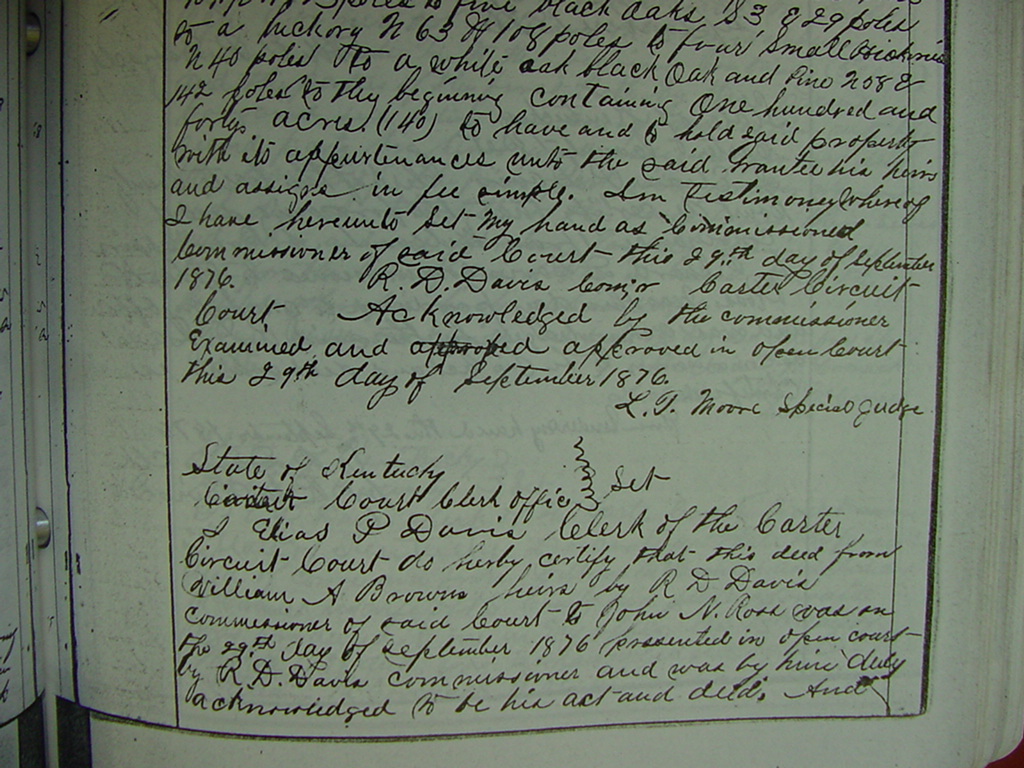 poles to five black oaks S 3 E 29 poles
to a hickory N 63 W 108 poles to four small
N 40 poles to a white oak black Oak and Pine N 08 E
142 poles to they beginning containing One hundred and
forty acres. (140) to have and to hold said property
with its appurtenances unto the said Grantee his heirs
and assigns in fee simple. In Testimony Whereof
I have hereunto Set my hand as Commissioned
Commissioner of said Court this 29th day of September
1876. R. D. Davis Com'r Carter Circuit
Court Acknowledged by the commissioner
Examined and approved in open Court
this 29th day of September 1876.
L. T. Moore Special Judge
State of Kentucky
Court Clerk office } Sct
I Elias P Davis Clerk of the Carter
Circuit Court do herby certify that this deed from
William A Browns heirs by R D Davis
commissioner of said Court to John N. Ross was on
the 29th day of September 1876 presented in open court
by R. D. Davis commissioner and was by him duly
acknowledged to be his act and deed. And